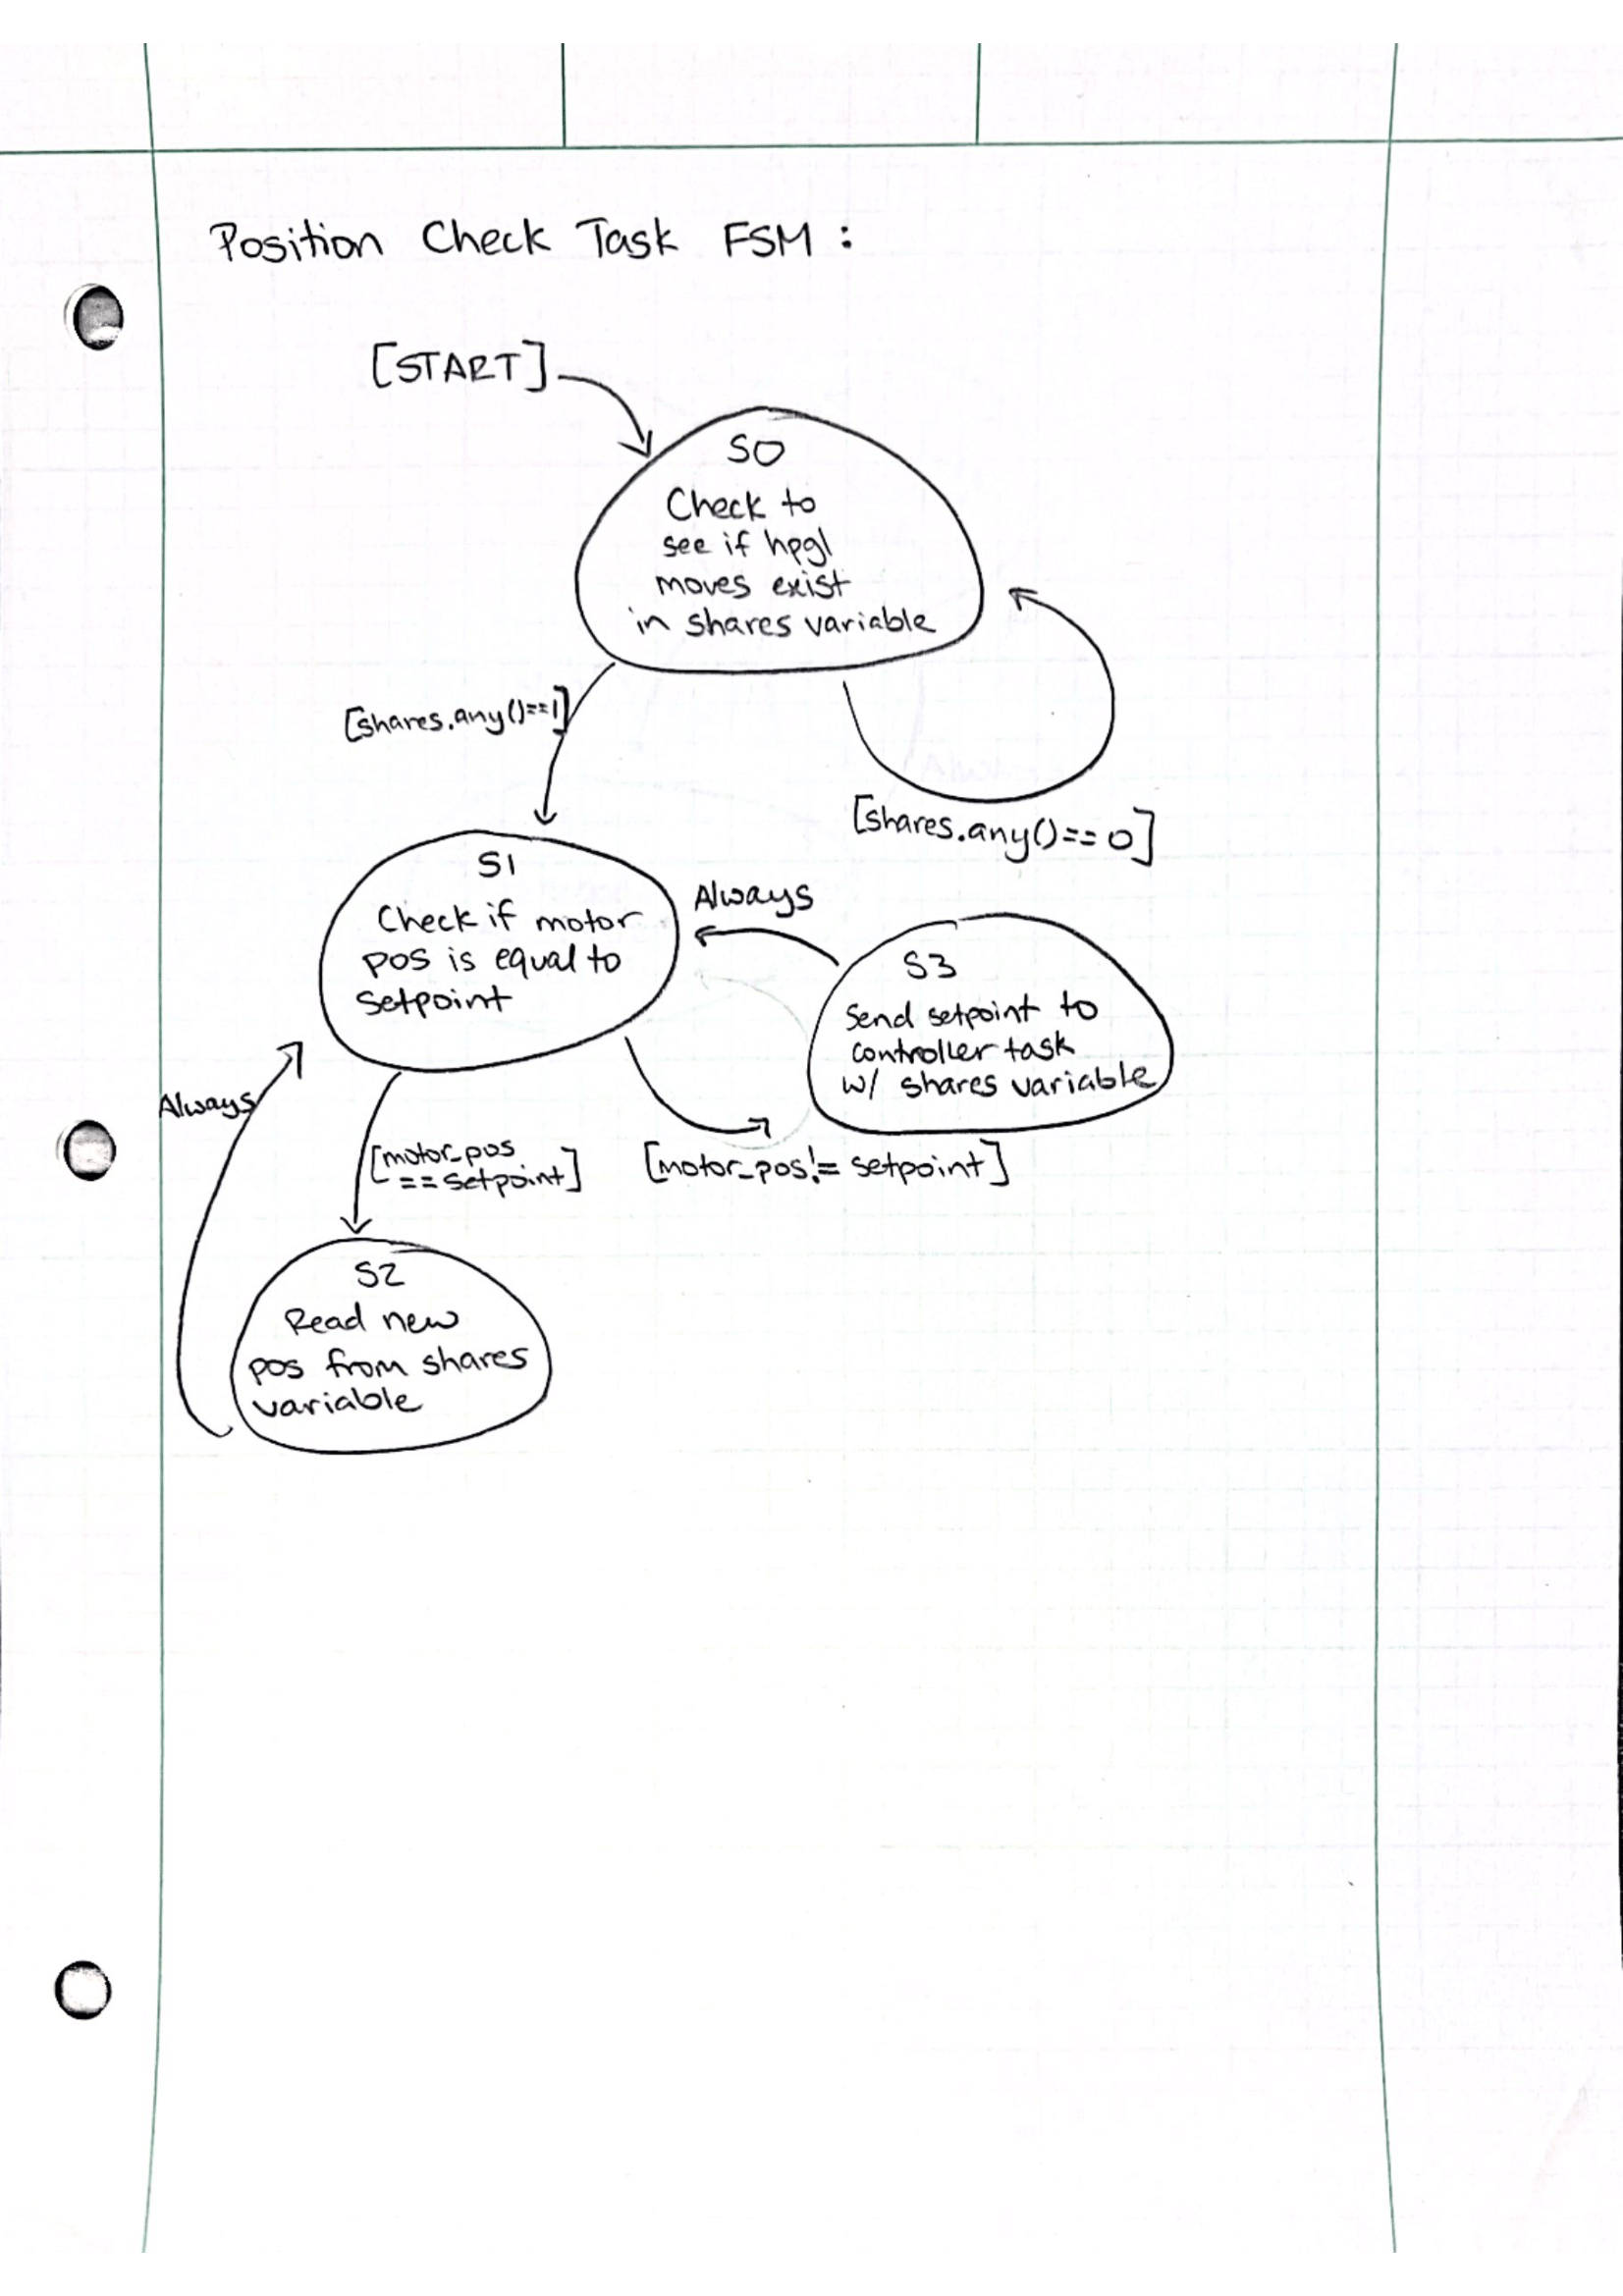 Position Check Task FSM:
[START]
S0
Check to
see if hpgl
moves exist
in shares variable
[shares.any()==1]
[shares.any()==0]
S1
Check if motor
pos is equal to
setpoint
Always
S3
Send setpoint to
controller task
w/ shares variable
Always
[motor_pos
==setpoint]
[motor_pos!= setpoint]
S2
Read new
pos from shares
variable